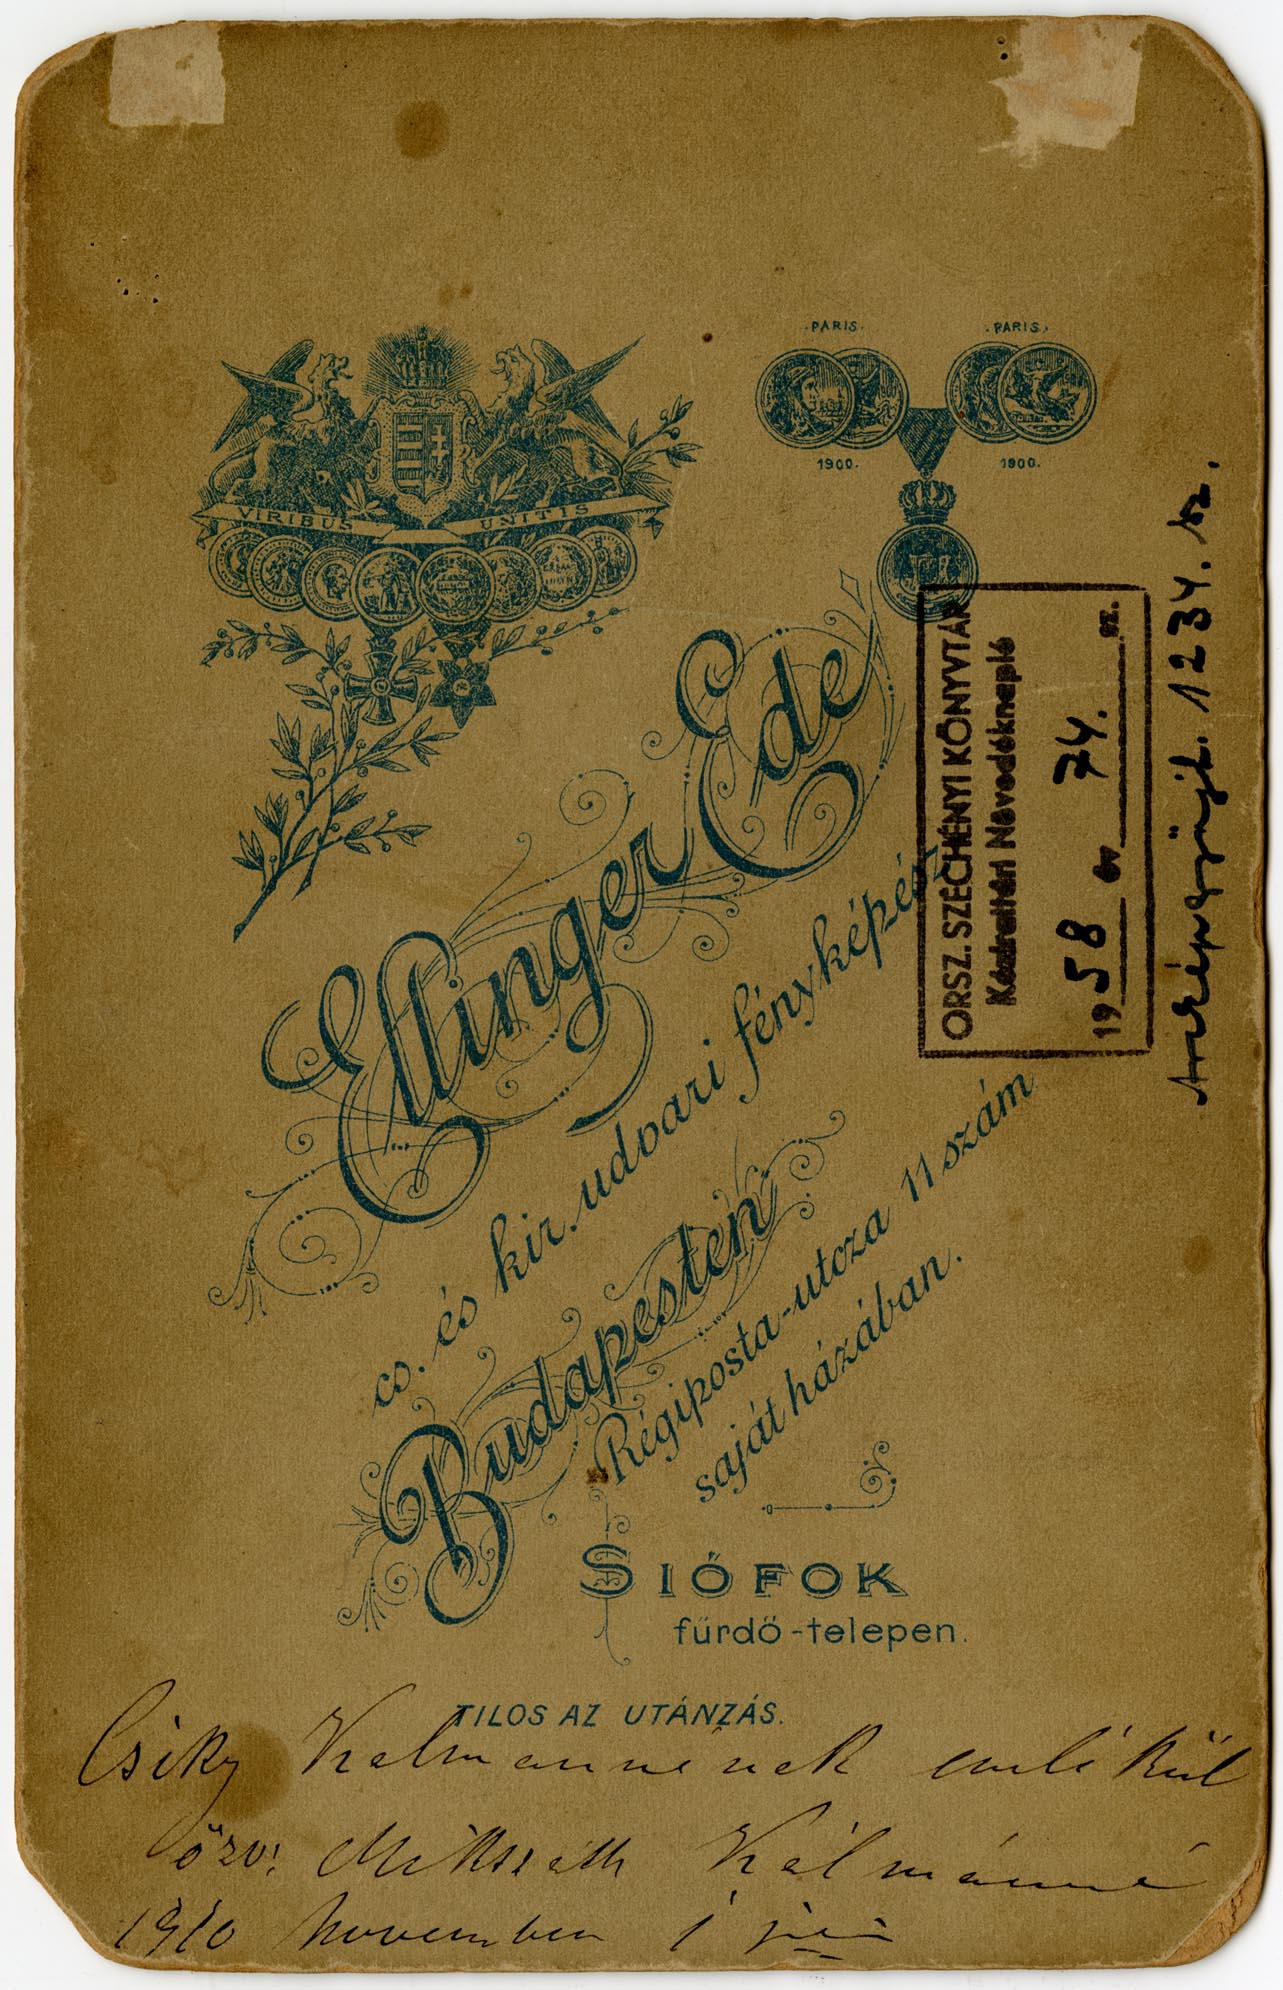 PARIS. PARIS.
1900. 1900.
VIRIBUS UNITIS
Ellinger Ede
cs. és kir. udvari fényképész
Budapesten
Régiposta-utcza 11 szám
saját házában.
SIÓFOK
fürdő-telepen.
TILOS AZ UTÁNZÁS.
ORSZ. SZÉCHÉNYI KÖNYVTÁR
Kézirattári Növedéknapló
1958 év 74. sz.
Arcképgyűjt. 1234. sz.
Csiky Kálmánnénak emlékül
özv: Mikszáth Kálmánné
1910 November 1 jén